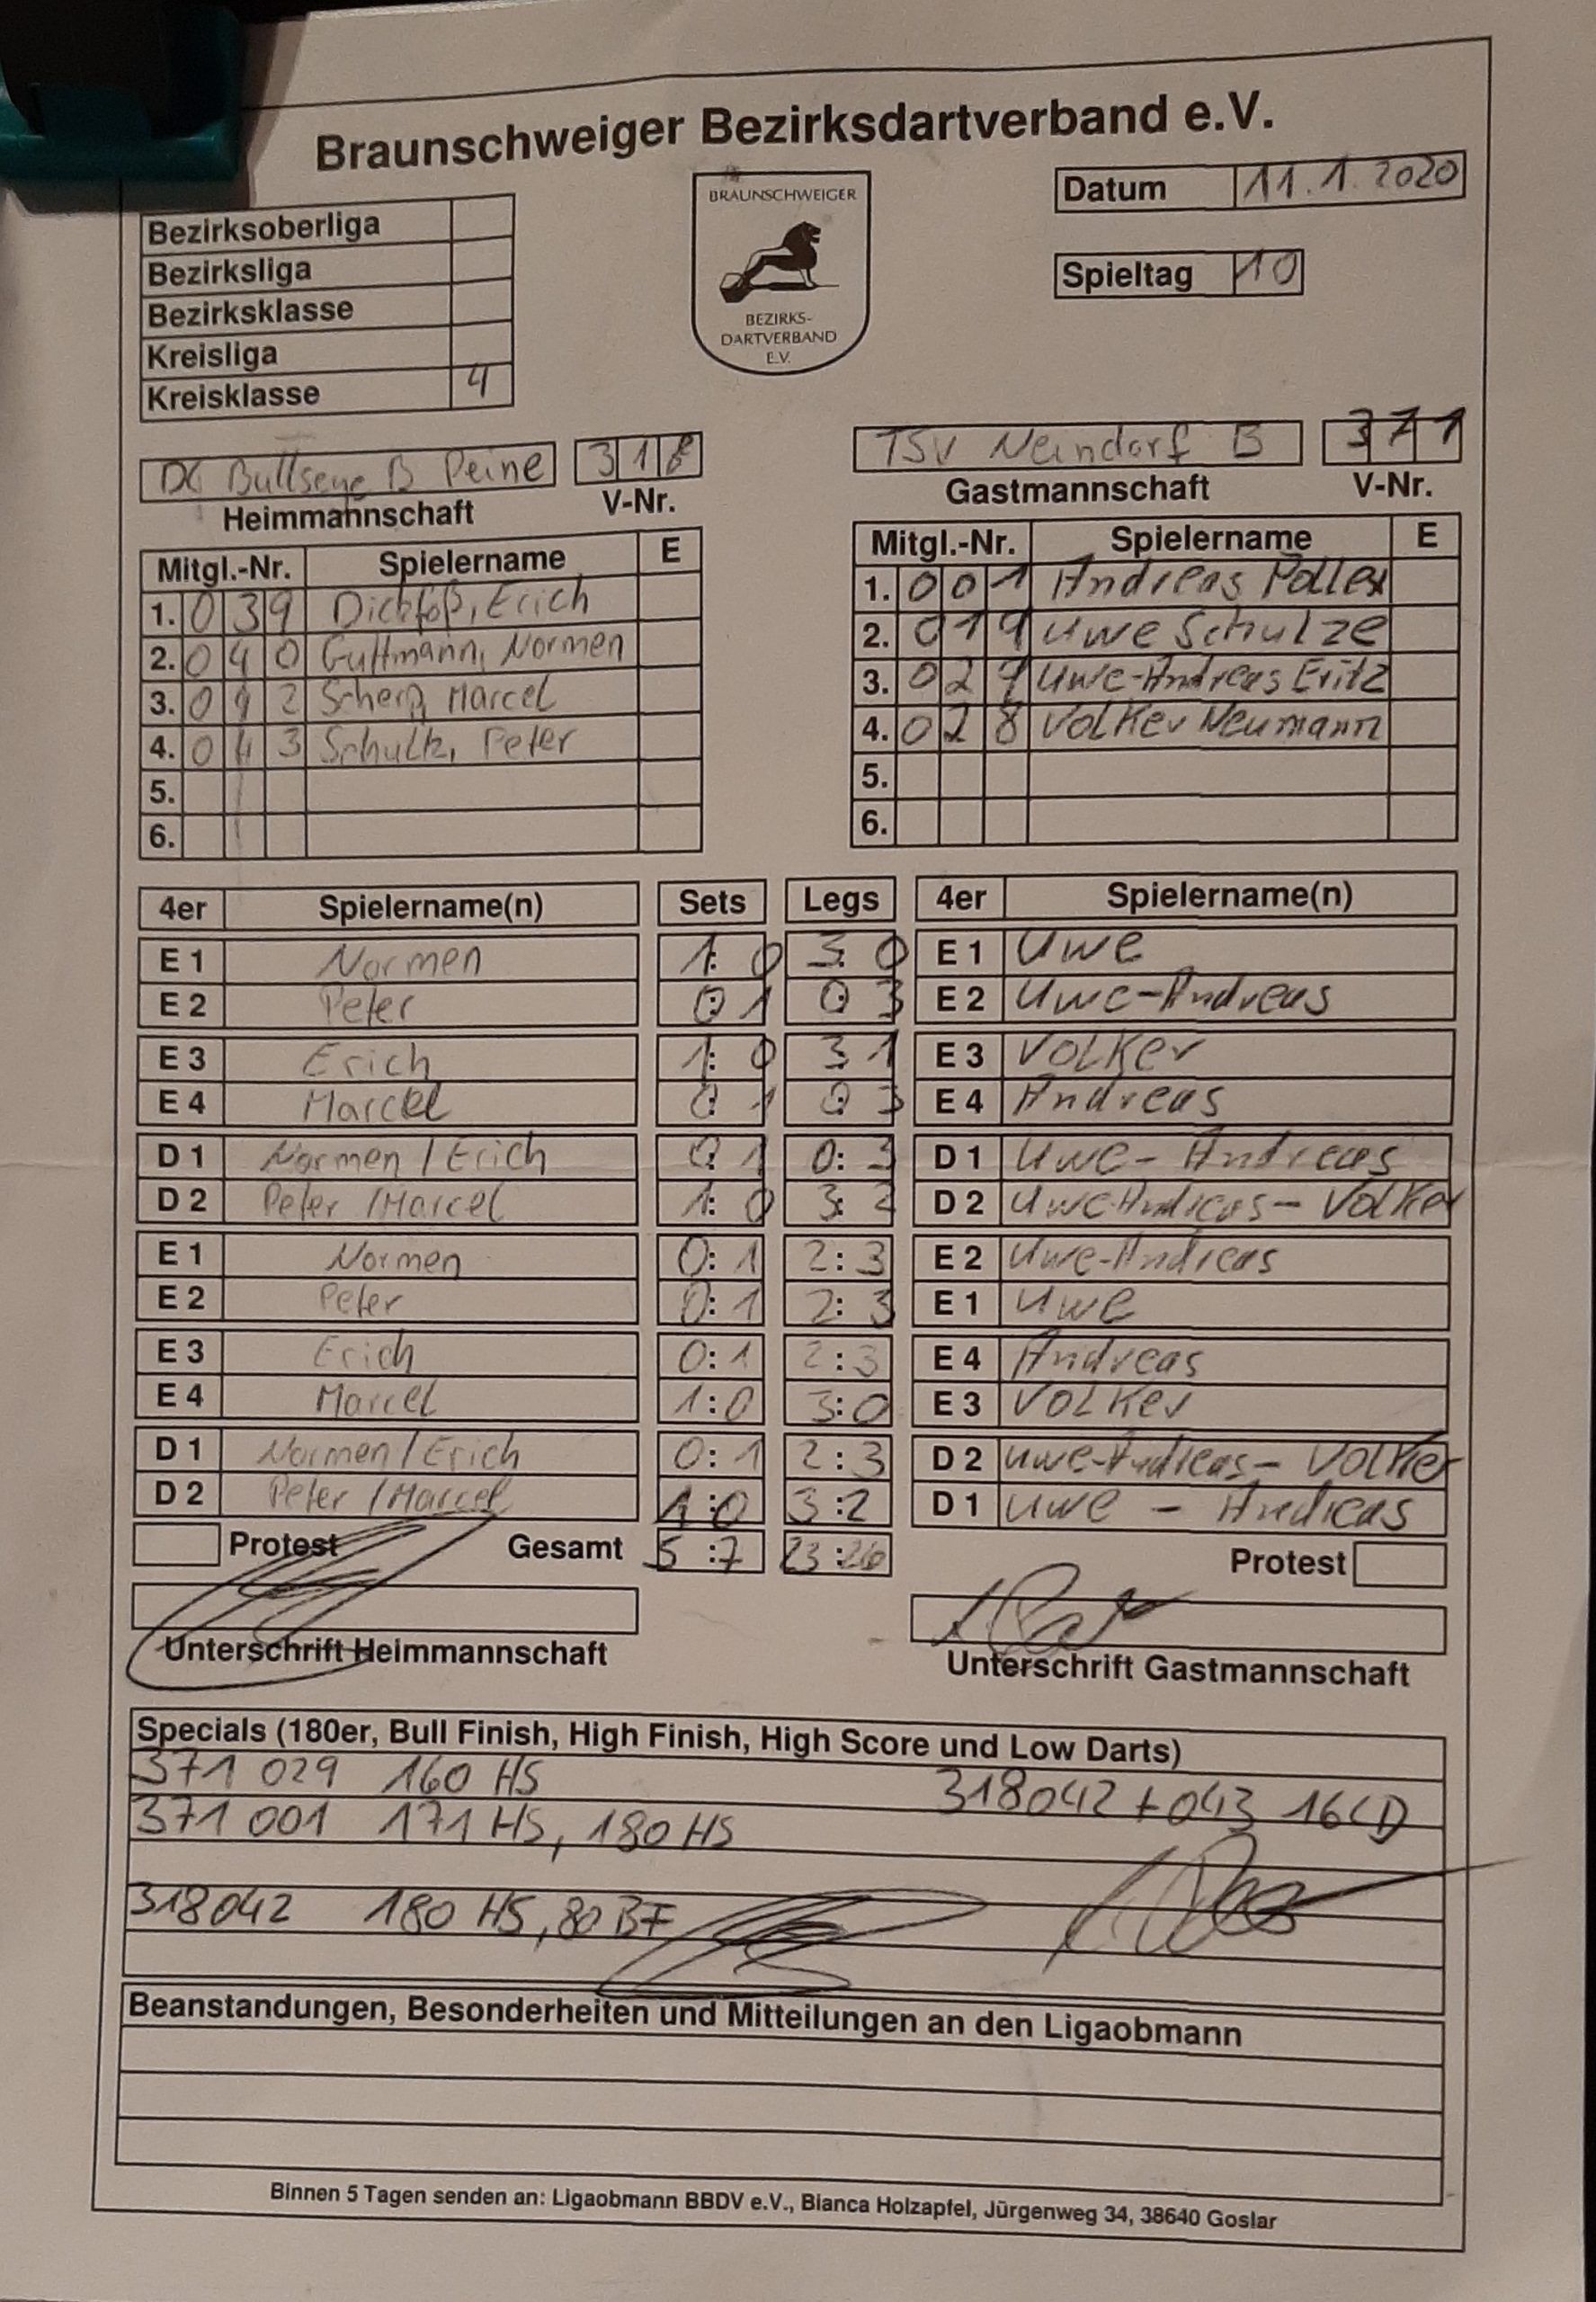 Braunschweiger Bezirksdartverband e.V.
Bezirksoberliga
Bezirksliga
Bezirksklasse
Kreisliga
Kreisklasse 4
BRAUNSCHWEIGER
BEZIRKS-
DARTVERBAND
E.V.
Datum 11.1.2020
Spieltag 10
DC Bullseye B Peine 318
Heimmannschaft V-Nr.
TSV Neindorf B 371
Gastmannschaft V-Nr.
Mitgl.-Nr. Spielername E
1. 039 Erich
2. 040 Guttmann, Normen
3. 042 Marcel
4. 043 Schultz, Peter
5.
6.
Mitgl.-Nr. Spielername E
1. 001 Andreas Pollex
2. 019 Uwe Schulze
3. 029 Uwe-Andreas
4. 028 Volker Neumann
5.
6.
4er Spielername(n) Sets Legs 4er Spielername(n)
E 1 Normen 1:0 3:0 E 1 Uwe
E 2 Peter 0:1 0:3 E 2 Uwe-Andreas
E 3 Erich 1:0 3 1 E 3 Volker
E 4 Marcel 0:1 0:3 E 4 Andreas
D 1 Normen / Erich 0:1 0:3 D 1 Uwe - Andreas
D 2 Peter / Marcel 1:0 3:2 D 2 Uwe-Andreas - Volker
E 1 Normen 0:1 2:3 E 2 Uwe-Andreas
E 2 Peter 0:1 2:3 E 1 Uwe
E 3 Erich 0:1 2:3 E 4 Andreas
E 4 Marcel 1:0 3:0 E 3 Volker
D 1 Normen / Erich 0:1 2:3 D 2 Uwe-Andreas - Volker
D 2 Peter / Marcel 1:0 3:2 D 1 Uwe - Andreas
Protest Gesamt 5:7 23:26 Protest
Unterschrift Heimmannschaft
Unterschrift Gastmannschaft
Specials (180er, Bull Finish, High Finish, High Score und Low Darts)
371 029 160 HS 318042 + 043 16LD
371 001 171 HS, 180 HS
318042 180 HS, 80 BF
Beanstandungen, Besonderheiten und Mitteilungen an den Ligaobmann
Binnen 5 Tagen senden an: Ligaobmann BBDV e.V., Bianca Holzapfel, Jürgenweg 34, 38640 Goslar